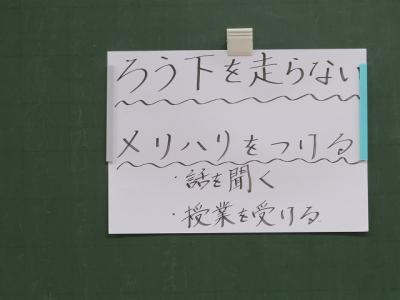 ろう下を走らない
メリハリをつける
・話を聞く
・授業を受ける